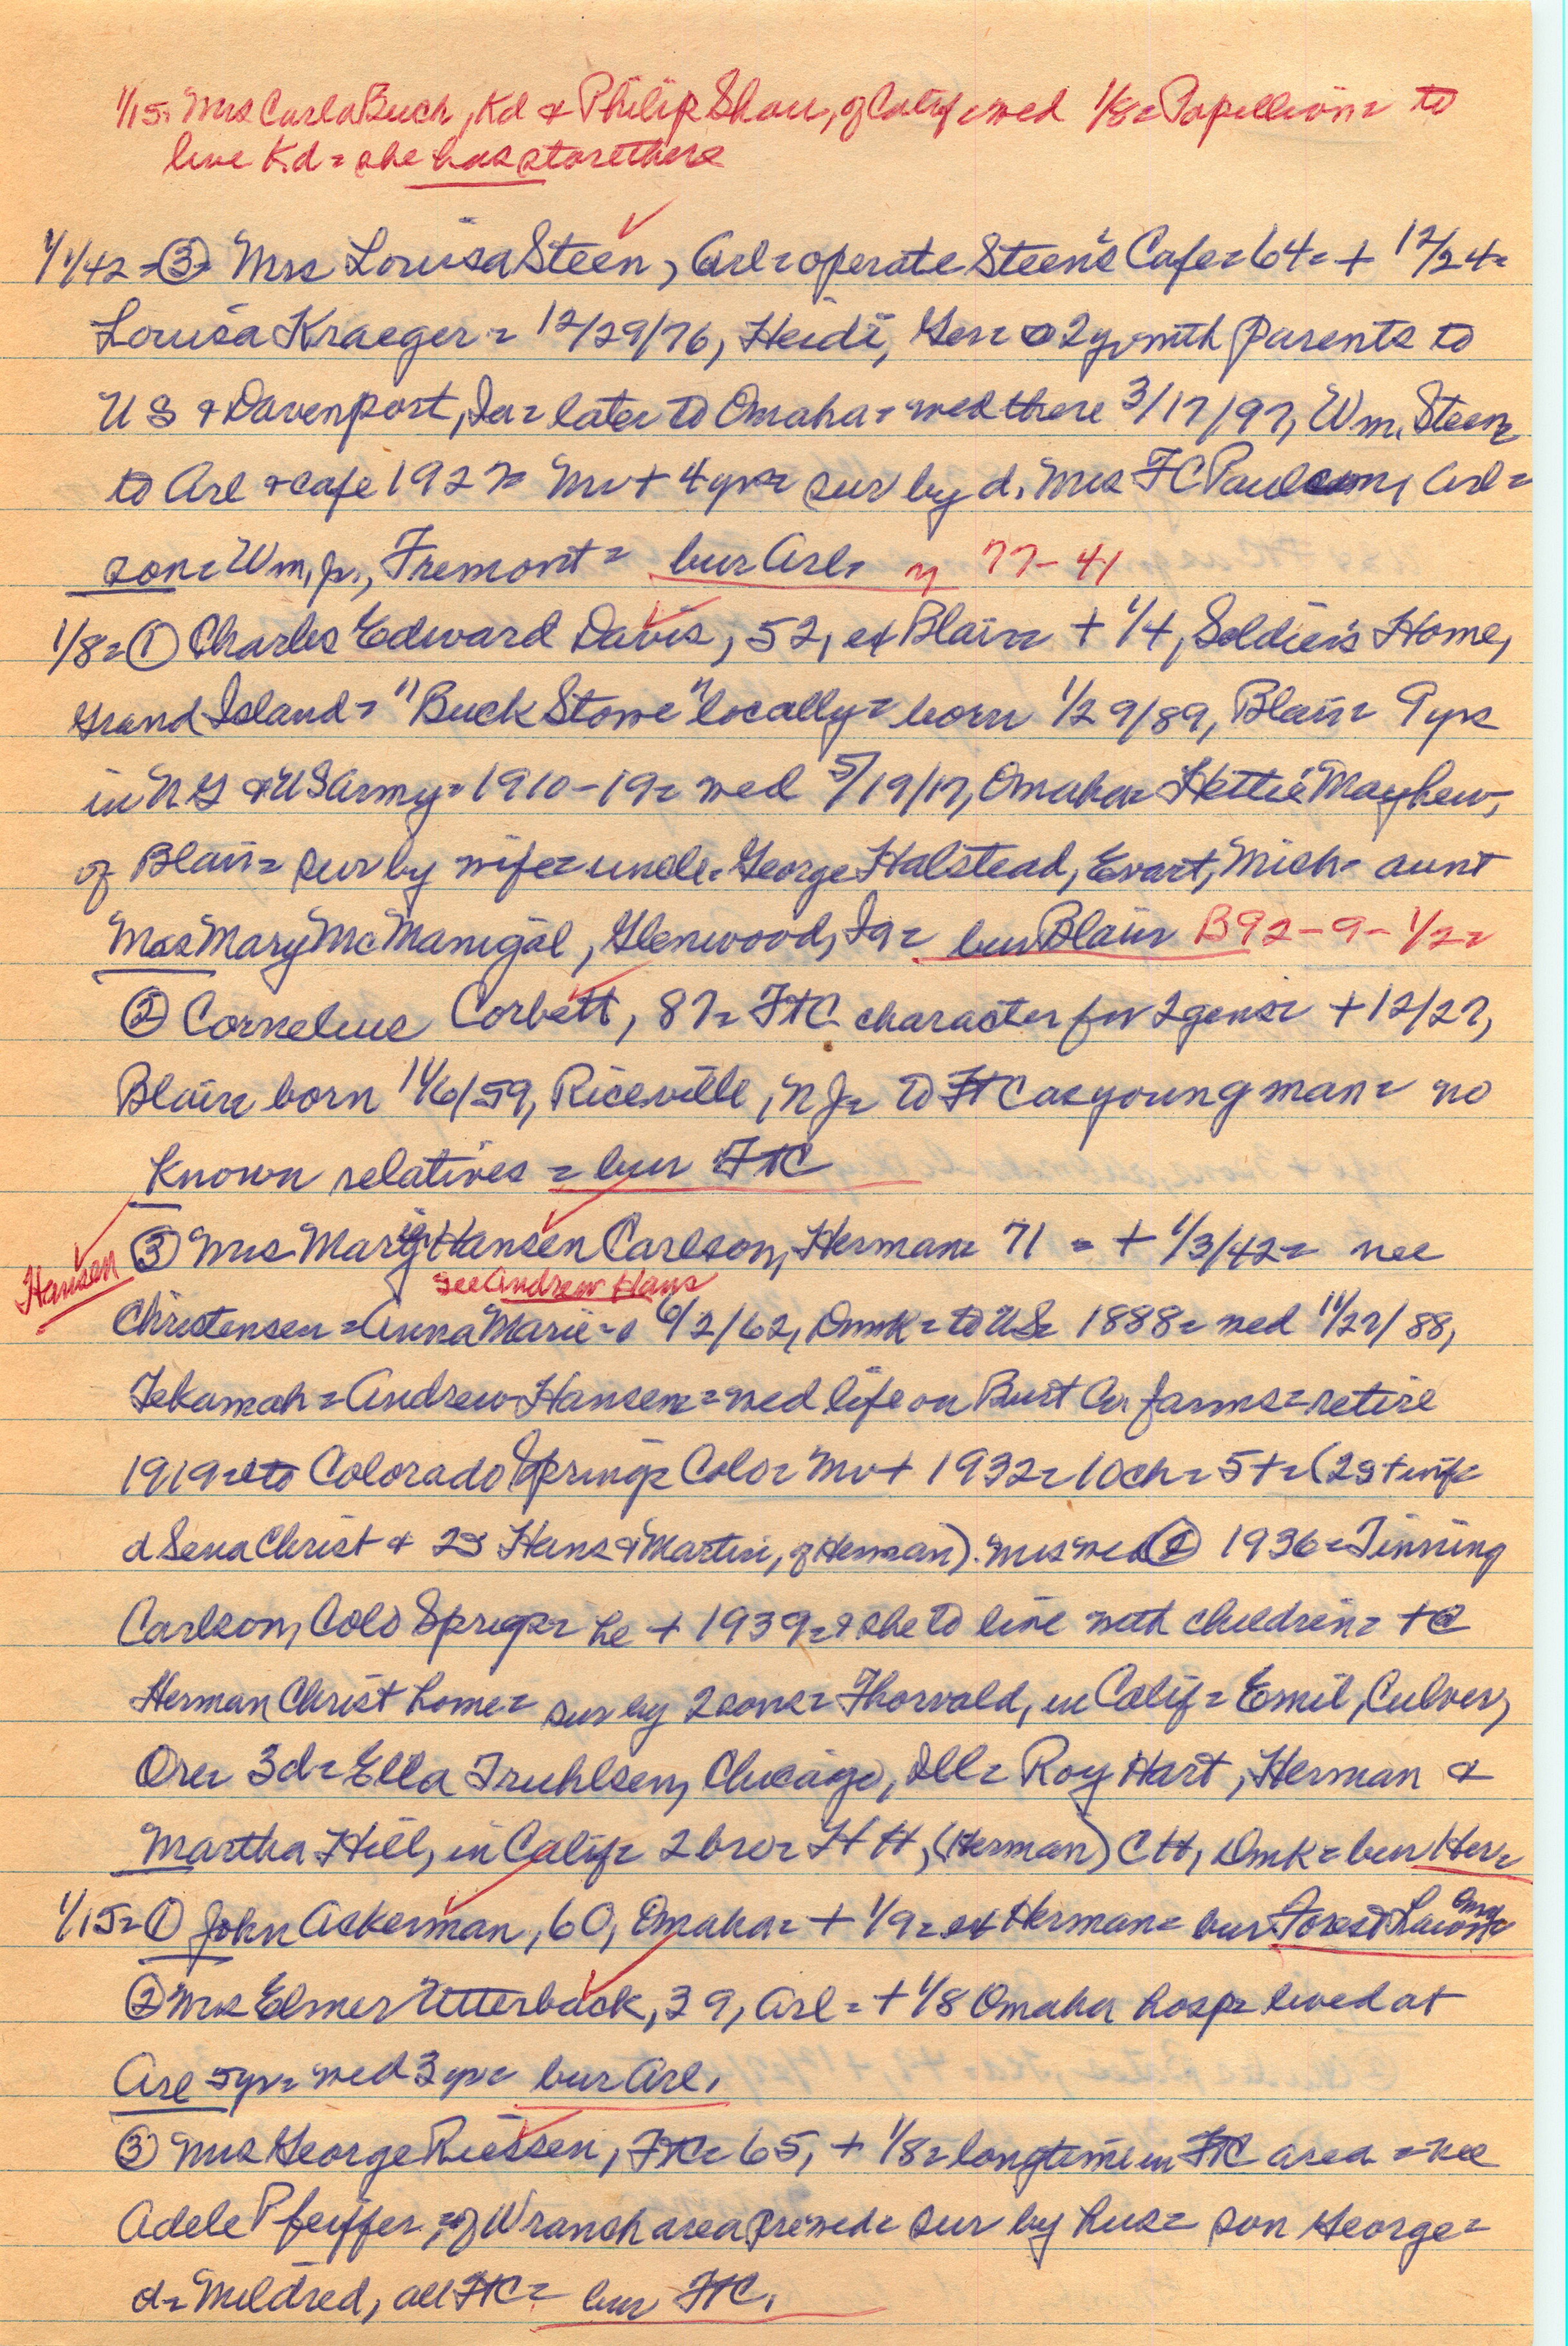 1/15= Mrs Carla Buch, Kd & Philip Shau, of Calif = wed 1/8 = Papillion = to
live Kd = she has store there
1/1/42 = ③ = Mrs Louisa Steen, Arl = operate Steen's Cafe = 64 = + 12/24 =
Louisa Kraeger = 12/29/76, Heidi, Ger = @ 2 yr with parents to
US & Davenport, Ia = later to Omaha = wed there 3/17/97, Wm. Steen =
to Arl & cafe 1927 = Mr + 4 yr = sur by d. Mrs FC Paulsen, Arl =
son = Wm, jr., Fremont = bur Arl. 77-41
1/8 = ① Charles Edward Davis, 52, ex Blair = + 1/4, Soldier's Home,
Grand Island = "Buck Stowe" locally = born 1/29/89, Blair = 9 yrs
in NG & US Army = 1910-19 = wed 5/19/17, Omaha = Hettie Mayhew,
of Blair = sur by wife = uncle = George Halstead, Evart, Mich = aunt
Mrs Mary McManigal, Glenwood, Ia = bur Blair B92-9-1/2 =
② Cornelius Corbett, 82 = FtC character for 2 gens = + 12/27,
Blair = born 11/6/59, Riceville, NJ = to FtC as young man = no
known relatives = bur FtC
③ Mrs Marie Hansen Carlson, Herman = 71 = + 1/3/42 = nee
Hansen
see Andrew Hans
Christensen = Anna Marie = 6/2/62, Dmk = to US = 1888 = wed 11/27/88,
Tekamah = Andrew Hansen = wed life on Burt Co farms = retire
1919 = to Colorado Springs Colo = Mr + 1932 = 10ch = 5+ = (2s + inf =
d Sena Christ & 2s Hans & Martin, of Herman). Mrs wed ② 1936 = Tinning
Carlson, Colo Sprngs = he + 1939 = & she to live with children = + @
Herman Christ home = sur by 2 sons = Thorvald, in Calif = Emil, Culver,
Ore = 3d = Ella Truhlsen, Chicago, Ill = Roy Hart, Herman &
Martha Hill, in Calif = 2 bro = H H, (Herman) C H, Dmk = bur Her =
1/15 = ① John Ackerman, 60, Omaha = + 1/9 = ex Herman = bur Forest Lawn Oma
② Mrs Elmer Utterback, 39, Arl = + 1/8 Omaha hosp = lived at
Arl 5yr = wed 3 yr = bur Arl.
③ Mrs George Riessen, FtC = 65, + 1/8 = longtime in FtC area = nee
Adele Pfeiffer, of W ranch area prewed = sur by hus = son George =
d = Mildred, all FtC = bur FtC.